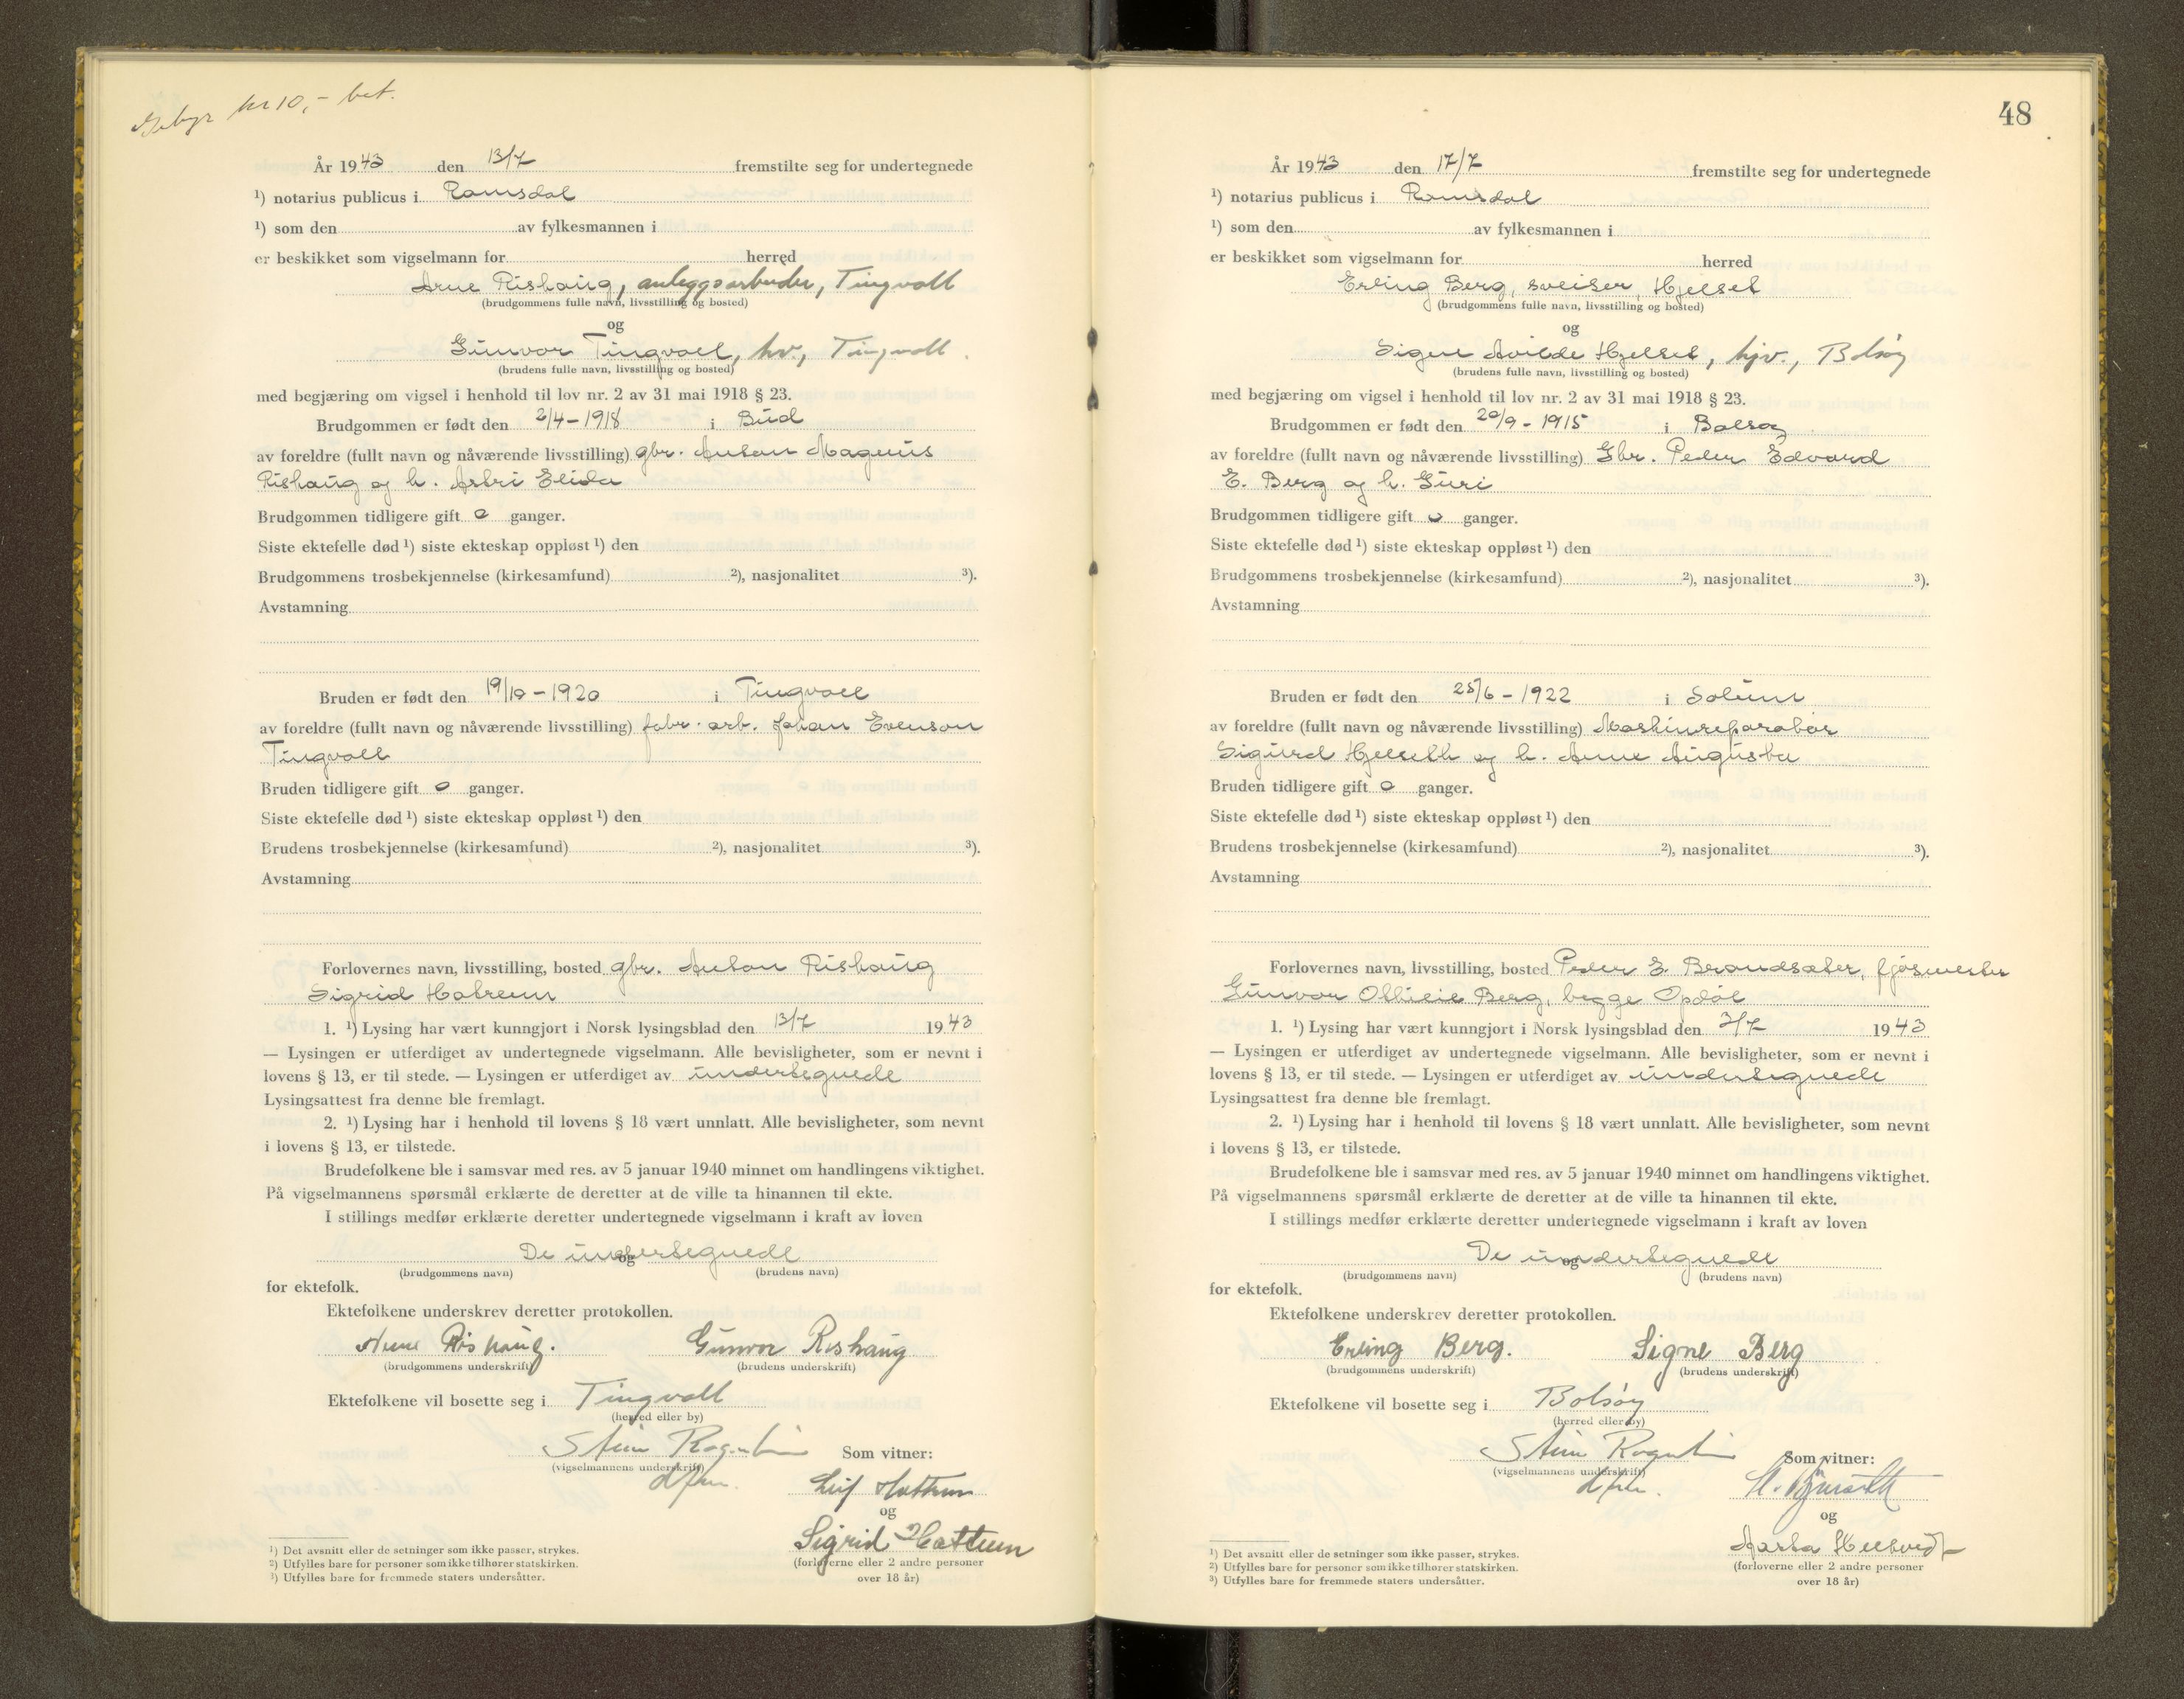 Gebyr kr 10,- bet.
År 1943 den 13/7 fremstilte seg for undertegnede
¹) notarius publicus i Romsdal
¹) som den av fylkesmannen i
er beskikket som vigselmann for herred
Arne Rishaug, anleggsarbeider, Tingvoll
(brudgommens fulle navn, livsstilling og bosted)
og
Gunvor Tingvoll, hv., Tingvoll
(brudens fulle navn, livsstilling og bosted)
med begjæring om vigsel i henhold til lov nr. 2 av 31 mai 1918 § 23.
Brudgommen er født den 2/4-1918 i Bud
av foreldre (fullt navn og nåværende livsstilling) gbr. Anton Magnus
Rishaug og h. Astri Elida
Brudgommen tidligere gift 0 ganger.
Siste ektefelle død ¹) siste ekteskap oppløst ¹) den
Brudgommens trosbekjennelse (kirkesamfund) ²), nasjonalitet ³).
Avstamning
Bruden er født den 19/10-1920 i Tingvoll
av foreldre (fullt navn og nåværende livsstilling) fabr. arb. Johan Evenson
Tingvoll
Bruden tidligere gift 0 ganger.
Siste ektefelle død ¹) siste ekteskap oppløst ¹) den
Brudens trosbekjennelse (kirkesamfund) ²), nasjonalitet ³).
Avstamning
Forlovernes navn, livsstilling, bosted gbr. Anton Rishaug
Sigrid Hatrem
1. ¹) Lysing har vært kunngjort i Norsk lysingsblad den 13/7 1943
— Lysingen er utferdiget av undertegnede vigselmann. Alle bevisligheter, som er nevnt i
lovens § 13, er til stede. — Lysingen er utferdiget av undertegnede
Lysingsattest fra denne ble fremlagt.
2. ¹) Lysing har i henhold til lovens § 18 vært unnlatt. Alle bevisligheter, som nevnt
i lovens § 13, er tilstede.
Brudefolkene ble i samsvar med res. av 5 januar 1940 minnet om handlingens viktighet.
På vigselmannens spørsmål erklærte de deretter at de ville ta hinannen til ekte.
I stillings medfør erklærte deretter undertegnede vigselmann i kraft av loven
De undertegnede
og
(brudgommens navn) (brudens navn)
for ektefolk.
Ektefolkene underskrev deretter protokollen.
Arne Rishaug. Gunvor Rishaug
(brudgommens underskrift) (brudens underskrift)
Ektefolkene vil bosette seg i Tingvoll
(herred eller by)
Stein Som vitner:
(vigselmannens underskrift)
Leif Hattrem
og
Sigrid Hattrem
(forloverne eller 2 andre personer
over 18 år)
¹) Det avsnitt eller de setninger som ikke passer, strykes.
²) Utfylles bare for personer som ikke tilhører statskirken.
³) Utfylles bare for fremmede staters undersåtter.
48
År 1943 den 17/7 fremstilte seg for undertegnede
¹) notarius publicus i Romsdal
¹) som den av fylkesmannen i
er beskikket som vigselmann for herred
Erling Berg, sveiser, Hjelset
(brudgommens fulle navn, livsstilling og bosted)
og
Signe Avilde Hjelset, hjv., Bolsøy
(brudens fulle navn, livsstilling og bosted)
med begjæring om vigsel i henhold til lov nr. 2 av 31 mai 1918 § 23.
Brudgommen er født den 20/9-1915 i Bolsøy
av foreldre (fullt navn og nåværende livsstilling) Gbr. Peder Edvard
E. Berg og h. Guri
Brudgommen tidligere gift 0 ganger.
Siste ektefelle død ¹) siste ekteskap oppløst ¹) den
Brudgommens trosbekjennelse (kirkesamfund) ²), nasjonalitet ³).
Avstamning
Bruden er født den 25/6-1922 i Solum
av foreldre (fullt navn og nåværende livsstilling) Maskinreparatør
Sigurd Hjelseth og h. Anne Augusta
Bruden tidligere gift 0 ganger.
Siste ektefelle død ¹) siste ekteskap oppløst ¹) den
Brudens trosbekjennelse (kirkesamfund) ²), nasjonalitet ³).
Avstamning
Forlovernes navn, livsstilling, bosted Peder E Brandsæter, fjøsmester
Gunvor Berg, begge Opdøl
1. ¹) Lysing har vært kunngjort i Norsk lysingsblad den 3/7 1943
— Lysingen er utferdiget av undertegnede vigselmann. Alle bevisligheter, som er nevnt i
lovens § 13, er til stede. — Lysingen er utferdiget av undertegnede
Lysingsattest fra denne ble fremlagt.
2. ¹) Lysing har i henhold til lovens § 18 vært unnlatt. Alle bevisligheter, som nevnt
i lovens § 13, er tilstede.
Brudefolkene ble i samsvar med res. av 5 januar 1940 minnet om handlingens viktighet.
På vigselmannens spørsmål erklærte de deretter at de ville ta hinannen til ekte.
I stillings medfør erklærte deretter undertegnede vigselmann i kraft av loven
De undertegnede
og
(brudgommens navn) (brudens navn)
for ektefolk.
Ektefolkene underskrev deretter protokollen.
Erling Berg. Signe Berg
(brudgommens underskrift) (brudens underskrift)
Ektefolkene vil bosette seg i Bolsøy
(herred eller by)
Stein Som vitner:
(vigselmannens underskrift)
og
(forloverne eller 2 andre personer
over 18 år)
¹) Det avsnitt eller de setninger som ikke passer, strykes.
²) Utfylles bare for personer som ikke tilhører statskirken.
³) Utfylles bare for fremmede staters undersåtter.